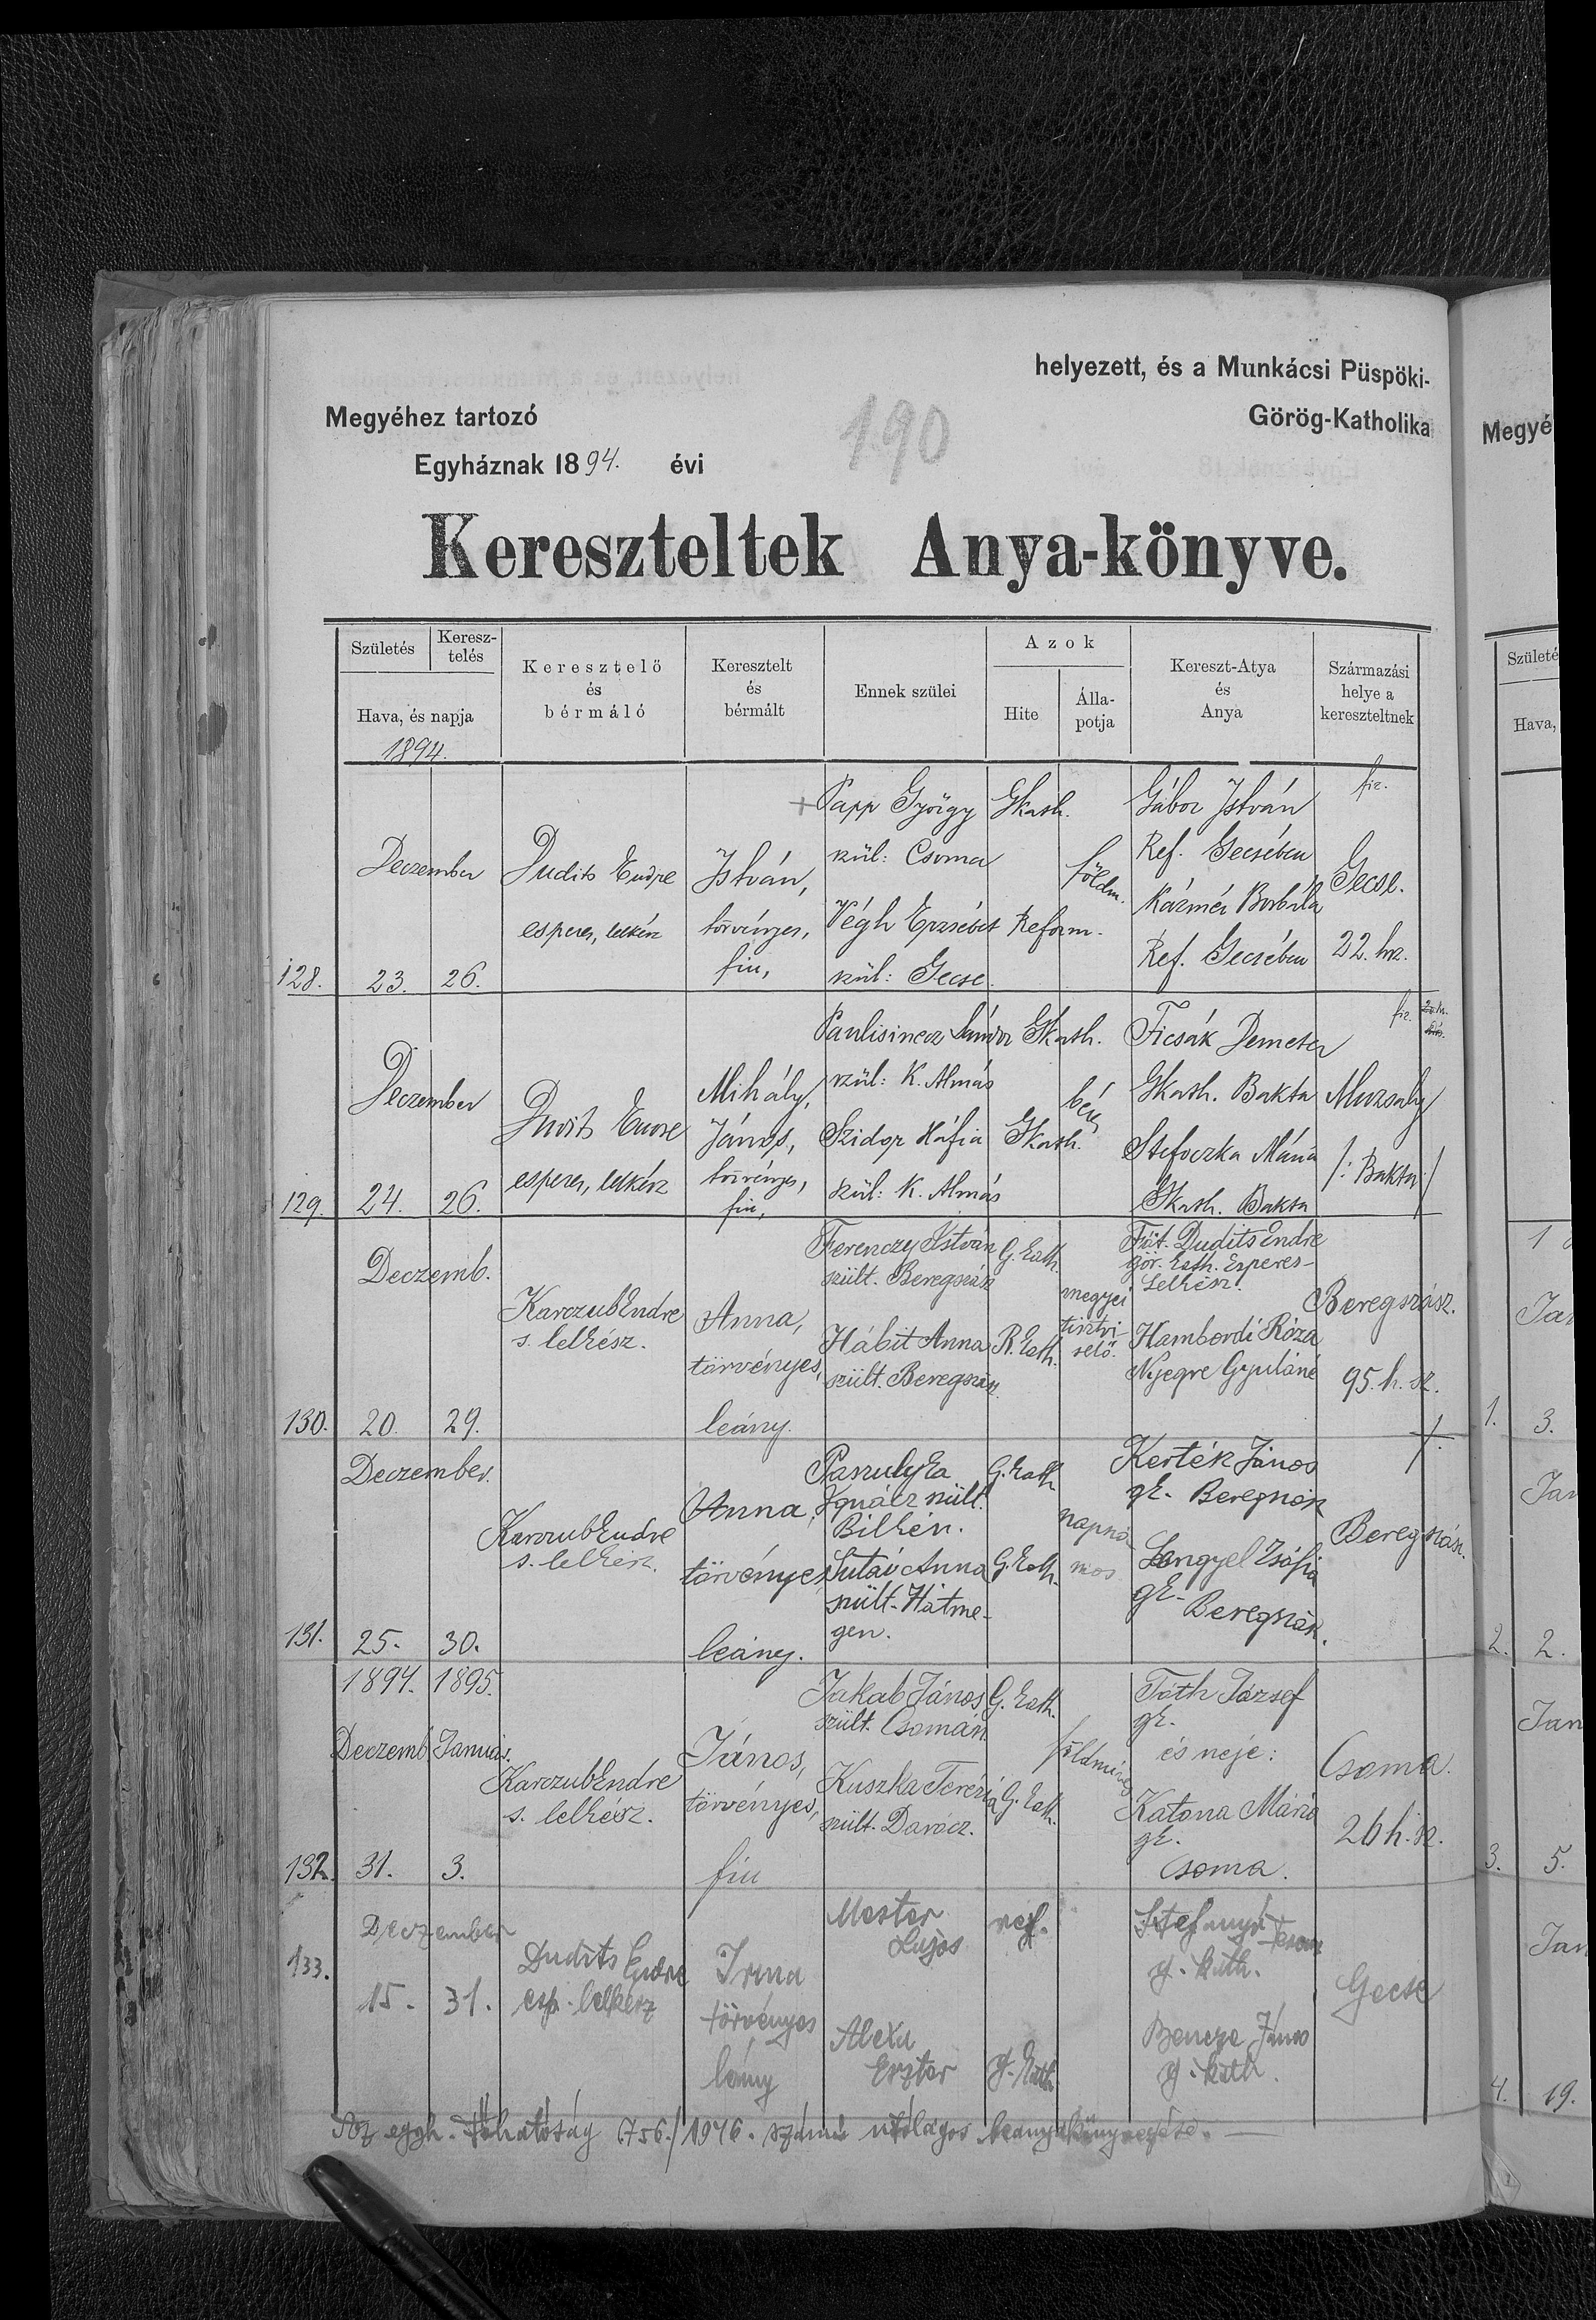 helyezett, és a Munkácsi Püspöki-
Megyéhez tartozó
Görög-Katholika
Egyháznak 1894. évi
190
Kereszteltek Anya-könyve.
Születés
Keresz-
telés
Hava, és napja
1894.
Keresztelő
és
bérmáló
Keresztelt
és
bérmált
Ennek szülei
Azok
Hite
Álla-
potja
Kereszt-Atya
és
Anya
Származási
helye a
kereszteltnek
128.
Deczember
23. 26.
Dudits Endre
esperes, lelkész
István,
törvényes,
fiu,
+ Papp György
szül: Csoma
Végh Erzsébet
szül: Gecse.
Gkath.
Reform.
földm.
Gábor István
Ref. Gecsében
Kázmér Borbála
Ref. Gecsében
fiz.
Gecse.
22. hsz.
129.
Deczember
24. 26.
Dudits Endre
esperes, lelkész
Mihály,
János,
törvényes,
fiu,
Paulisinecz Sándor
szül: K. Almás
Szidor Háfia
szül: K. Almás
Gkath.
Gkath.
bér
Ficsák Demeter
Gkath. Bakta
Stefoczka Mária
Gkath. Bakta
fiz.
Muzsaly
/: Bakta :/
130.
Deczemb.
20. 29.
Karczub Endre
s. lelkész.
Anna,
törvényes,
leány.
Ferenczy István
szült. Beregszász
Hábit Anna
szült. Beregszász
G. kath.
R. kath.
megyei
tisztvi-
selő.
Főt. Dudits Endre
gör. kath. Esperes-
Lelkész.
Hambordi Róza
Nyegre Gyuláné
Beregszász.
95. h. sz.
131.
Deczember.
25. 30.
Karczub Endre
s. lelkész.
Anna,
törvényes,
leány.
Paszulyka
Ignácz szült.
Bilkén.
Lutái Anna
szült. Hátme-
gen.
G. kath
G. kath.
napszá-
mos
Kerték János
gk. Beregszász
Lengyel Zsófia
gk.
Beregszász.
Beregszász.
132.
1894. 1895.
Deczemb. Január.
31. 3.
Karczub Endre
s. lelkész.
János,
törvényes,
fiu
Jakab János
szült. Csomán
Kuszka Terézia
szült. Darócz.
G. kath.
G. kath.
földműves
Tóth József
gk.
és neje:
Katona Mária
gk.
Csoma.
Csoma.
26 h. sz.
133.
Deczember
15. 31.
Dudits Endre
esp. lelkész
Irma
törvényes
leány
Mester
Lajos
Alexa
Eszter
ref.
g. kath.
g. kath.
Bencze János
g. kath.
Gecse
Az egyh. főhatóság 756./1946. számú utólagos beanyakönyvezése.
Megyé
Születé
Hava,
Jan
1. 3.
Jan
2. 2.
Jan
3. 5.
Jan
4. 19.